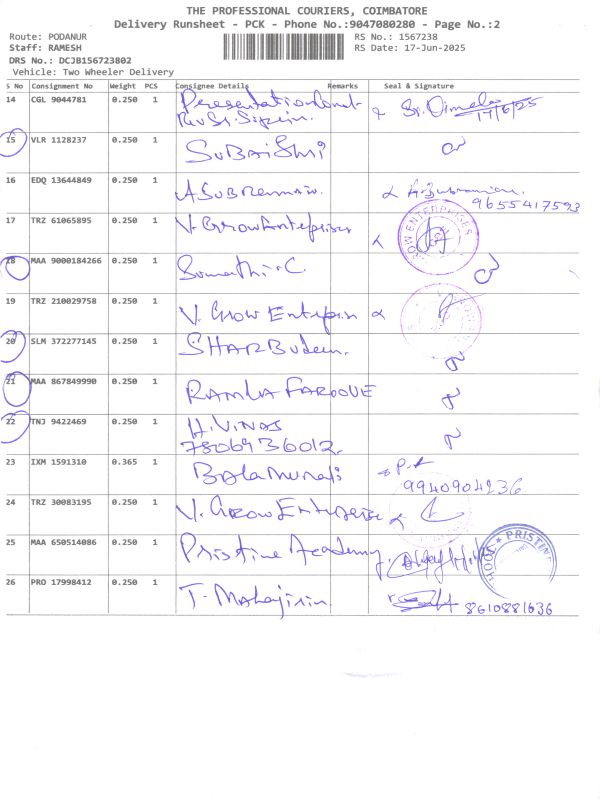 THE PROFESSIONAL COURIERS, COIMBATORE
Delivery Runsheet - PCK - Phone No.:9047080280 - Page No.:2
Route: PODANUR
RS No.: 1567238
Staff: RAMESH
RS Date: 17-Jun-2025
DRS No.: DCJB156723802
Vehicle: Two Wheeler Delivery
S No Consignment No Weight PCS Consignee Details Remarks Seal & Signature
14 CGL 9044781 0.250 1 Presentation 17/6/25
15 VLR 1128237 0.250 1 SuBaiShri
16 EDQ 13644849 0.250 1 A SuBRemani
9655417593
17 TRZ 61065895 0.250 1 V. Grow Enteprises
ROW ENTERPRISES
18 MAA 9000184266 0.250 1 Sumathi.C.
19 TRZ 210029758 0.250 1 V. Grow
20 SLM 372277145 0.250 1 SHARBudeen.
21 MAA 867849990 0.250 1 RAMLA FAROOVE
22 TNJ 9422469 0.250 1 H. ViNAS
7806936012.
23 IXM 1591310 0.365 1 BalaMurali
9940904236
24 TRZ 30083195 0.250 1 V. Grow
25 MAA 650514086 0.250 1 Pristine Academy
PRISTINE
26 PRO 17998412 0.250 1 T. 8610881636